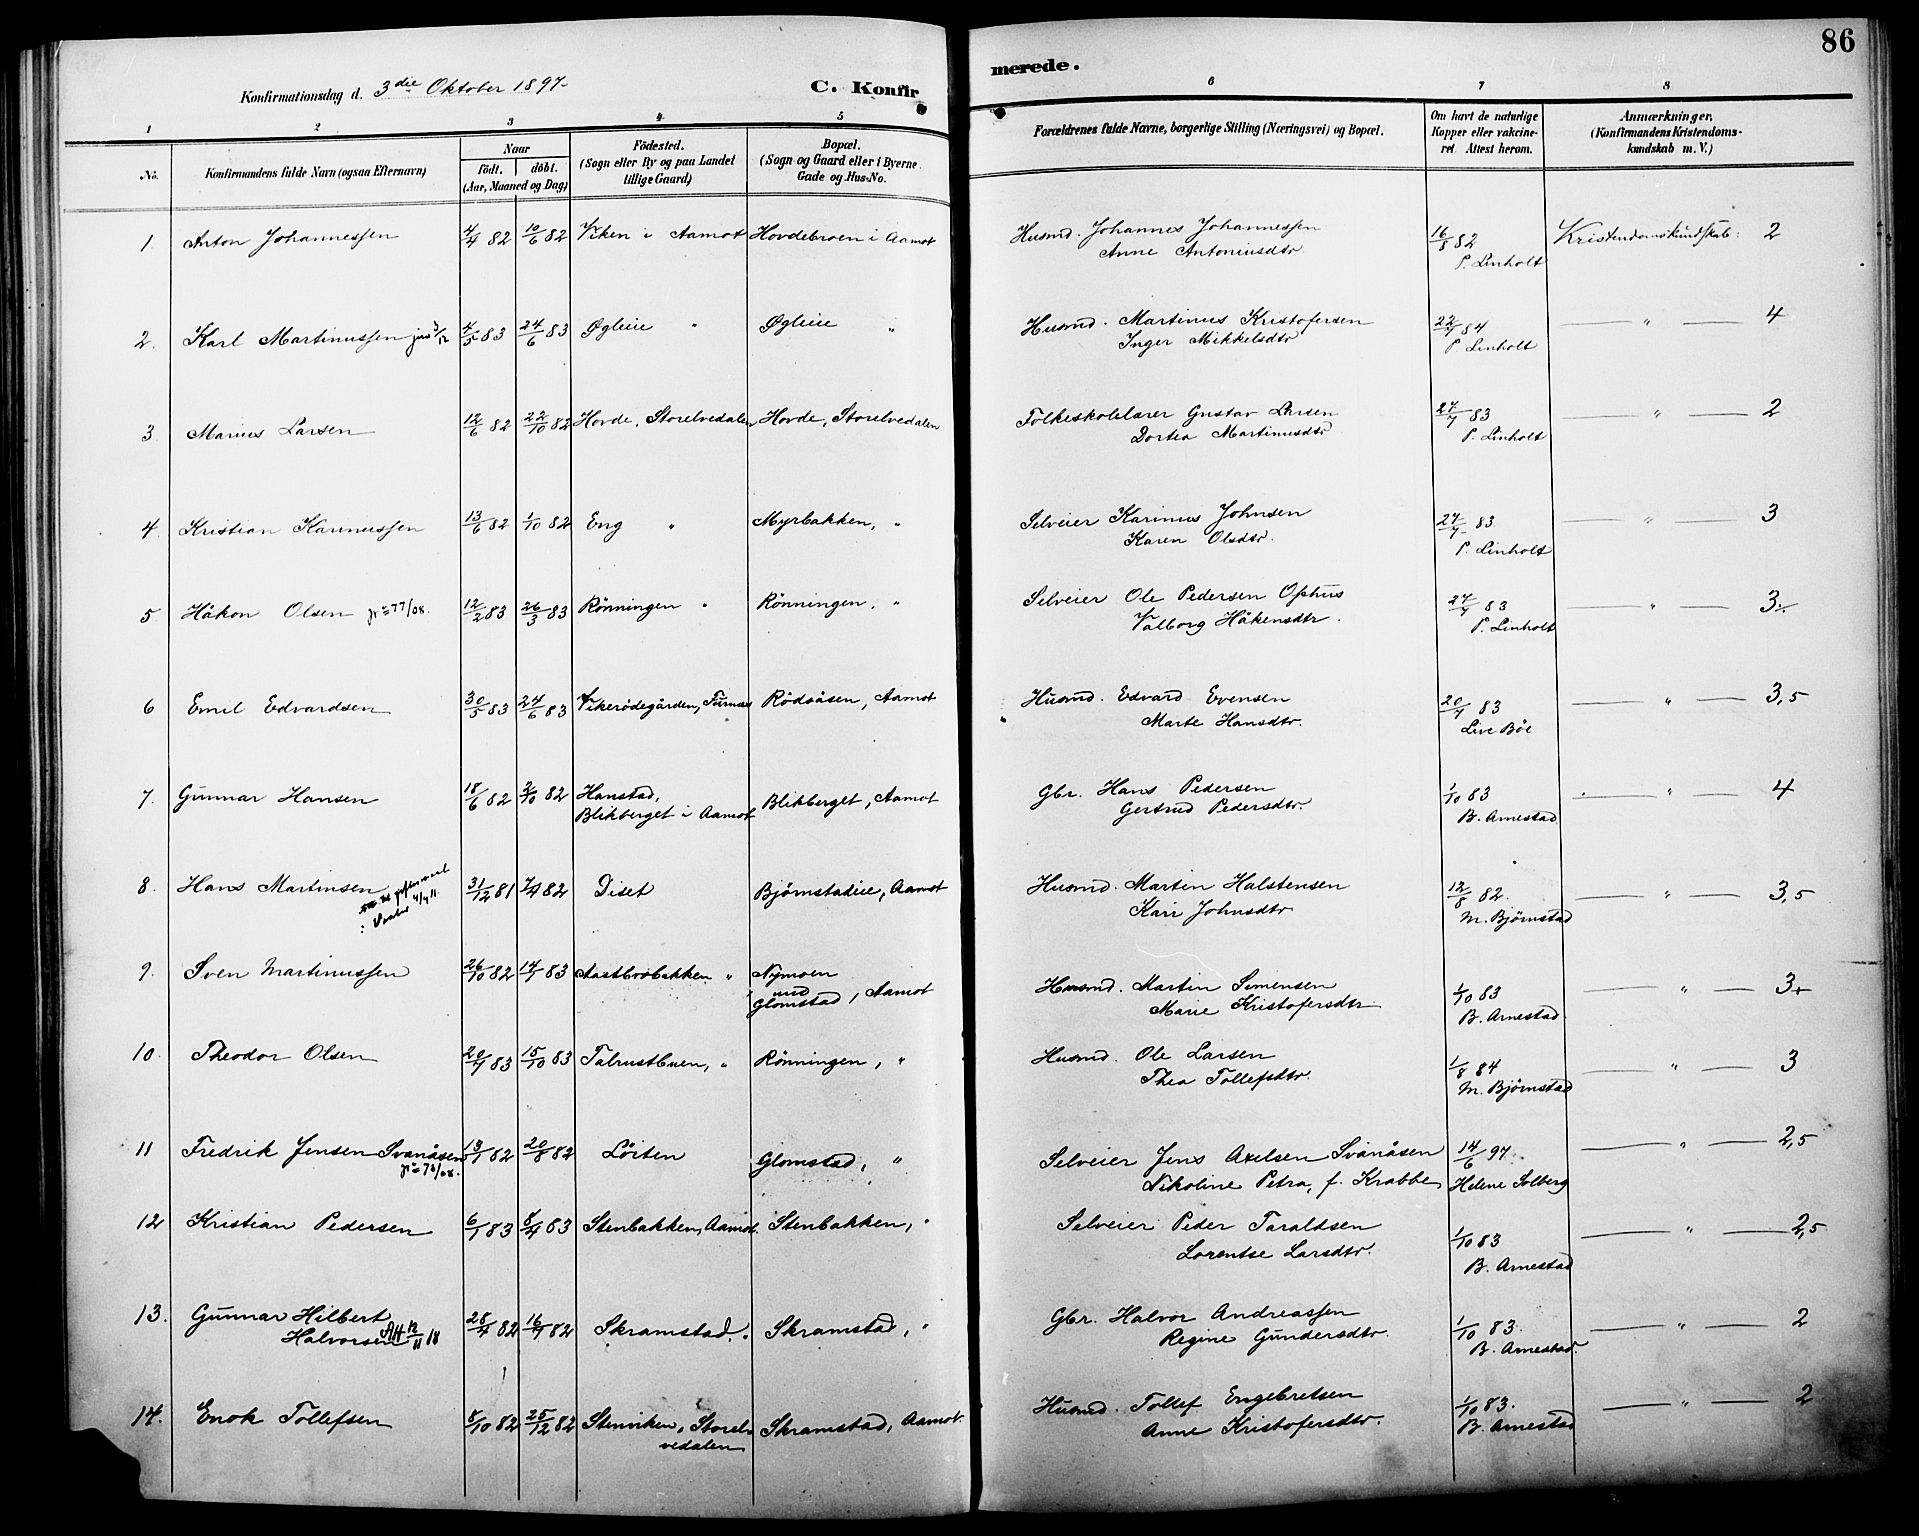 86
Konfirmationsdag d. 3die Oktober 1897.
C. Konfirmerede.
1 2 3 4 5 6 7 8
No.
Konfirmandens fulde Navn (ogsaa Efternavn)
Naar
födt. döbt.
(Aar, Maaned og Dag)
Födested.
(Sogn eller By og paa Landet
tillige Gaard)
Bopæl.
(Sogn og Gaard eller i Byerne
Gade og Hus-No.
Forældrenes fulde Navne, borgerlige Stilling (Næringsvei) og Bopæl.
Om havt de naturlige
Kopper eller vakcine-
ret. Attest herom.
Anmærkninger,
(Konfirmandens Kristendoms-
kundskab m. V.)
1. Anton Johannessen 4/4 82 10/6 82 Viken i Aamot Hovdebroen i Aamot Husmd. Johannes Johannessen 16/8 82 Kristendomskundskab: 2
Anne Antoniusdtr. P. Linholt
2. Karl Martinussen 4/5 83 24/6 83 Øgleie " Øgleie " Husmd. Martinus Kristofersen 22/7 84 " 4
Inger Mikkelsdtr P. Linholt
3. Marius Larsen 12/6 82 22/10 82 Hovde, Storelvedalen Hovde, Storelvedalen Folkeskolelærer Gustav Larsen 27/7 83 " 2
Dortea Martinusdtr P. Linholt
4. Kristian Karinussen 13/6 82 1/10 82 Eng " Myrbakken, " Selveier Karinus Johnsen 27/7 83. " 3
Karen Olsdtr. P. Linholt
5. Håkon Olsen 77/08. 12/2 83 26/3 83 Rönningen " Rönningen, " Selveier Ole Pedersen Ophus 27/7 83 " 3÷
Valborg Håkensdtr. P. Linholt
6 Emil Edvardsen 30/5 83 24/6 83 Vikerödegården, Furnes Rödsåsen, Aamot Husmd. Edvard Evensen 20/7 83 " 3,5
Marte Hansdtr. Live Böe
7. Gunnar Hansen 18/6 82 2/10 82 Hanstad, Blikberget, Aamot Gbr. Hans Pedersen 1/10 83 " 4
Blikberget i Aamot Gertrud Pedersdtr. B. Arnestad
8. Hans Martinsen 31/12 81 7/4 82 Diset Björnstadie, Aamot Husmd. Martin Halstensen 12/8 82. " 3,5
4/4 11. Kari Johnsdtr M. Björnstad
9. Sven Martinussen 26/10 82 14/1 83 Aastbrobakken " Nymoen Husmd. Martin Simensen 1/10 83 " 3+
und
Glomstad, Aamot Marie Kristofersdtr B. Arnestad
10. Theodor Olsen 20/7 83 15/10 83 Talrustbuen, " Rönningen, " Husmd. Ole Larsen 1/8 84 " 3
Thea Tollefsdtr. M. Björnstad
11 Fredrik Jensen Svanåsen 13/1 82 20/8 82 Löiten Glomstad, " Selveier Jens Axelsen Svanåsen 14/6 97. " 2,5
78/08. Nikoline Petra, f. Krabbe Helene Solberg
12 Kristian Pedersen 6/1 83 8/4 83 Stenbakken, Aamot. Stenbakken, " Selveier Peder Taraldsen 1/10 83 " 2,5
Lorentse Larsdtr. B. Arnestad
13. Gunnar Hilbert 28/4 82 16/7 82 Skramstad, " Skramstad, " Gbr. Halvor Andreassen 1/10 83. " 2
Halvorsen 12/11 18 Regine Gundersdtr. B. Arnestad.
14. Enok Tollefsen 8/10 82 25/12 82 Stenviken, Storel- Skramstad, Aamot. Husmd. Tollef Engebretsen 1/10 83. " 2
vedalen Anne Kristofersdtr. B. Arnestad